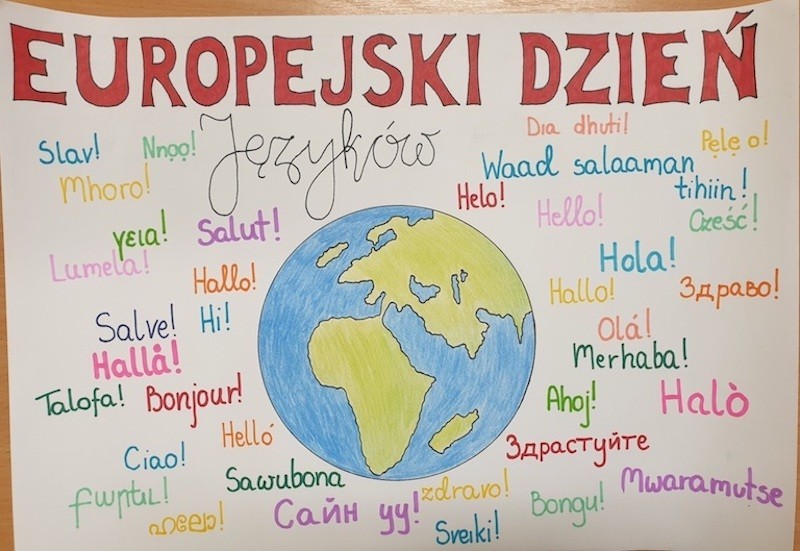 EUROPEJSKI DZIEŃ
Języków
Slav!
Nnọọ!
Dıa dhuti!
Pẹlẹ o!
Mhoro!
Waad salaaman
tihiin!
Helo!
Hello!
Cześć!
γεια!
Salut!
Lumela!
Hallo!
Hola!
Hallo!
Здраво!
Salve!
Hi!
Olá!
Hallå!
Merhaba!
Talofa!
Bonjour!
Ahoj!
Halò
Helló
Здрастуйте
Ciao!
Sawubona
Mwaramutse
ഹലോ!
Сайн уу!
zdravo!
Bongu!
Sveiki!